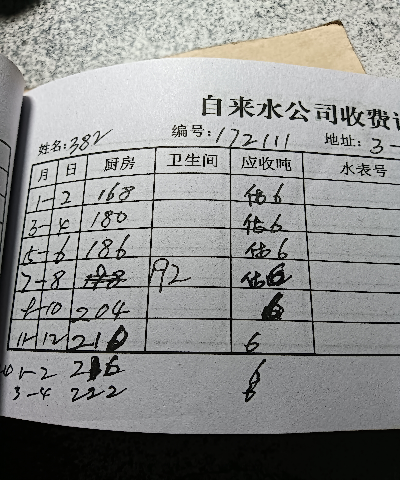 自来水公司收费
姓名:382 编号:172111 地址:3-
月 日 厨房 卫生间 应收吨 水表号
1-2 168 估6
3-4 180 估6
5-6 186 估6
7-8 192 估6
9-10 204 6
11-12 210 6
1-2 216 6
3-4 222 6